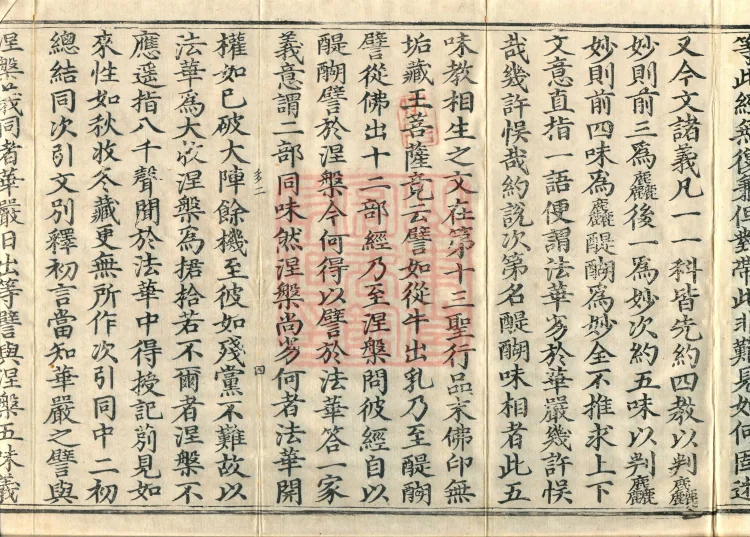 等此經無復兼但對帶此非難見如何固迷
又今文諸義凡一一科皆先約四教以判麤
妙則前三爲麤後一爲妙次約五味以判麤
妙則前四味爲麤醍醐爲妙全不推求上下
文意直指一語便謂法華劣於華嚴幾許悞
哉幾許悞哉約說次第名醍醐味相者此五
味教相生之文在第十三聖行品末佛印無
垢藏王菩薩竟云譬如從牛出乳乃至醍醐
譬從佛出十二部經乃至涅槃問彼經自以
醍醐譬於涅槃今何得以譬於法華答一家
義意謂二部同味然涅槃尚劣何者法華開
權如已破大陣餘機至彼如殘黨不難故以
法華爲大收涅槃爲捃拾若不爾者涅槃不
應遥指八千聲聞於法華中得授記莂見如
來性如秋收冬藏更無所作次引同中二初
總結同次引文別釋初言當知華嚴之譬與
涅槃義同者華嚴日出等譬與涅槃五味義
多二
四